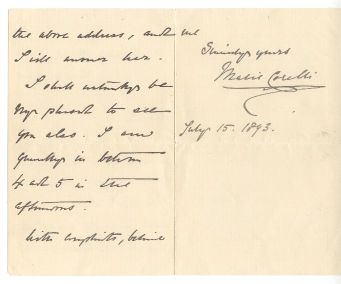 the above address, and we
I will answer her.
I shall certainly be
very pleased to see
you also. I am
generally in between
4 and 5 in the
afternoons.
With compliments, believe
me
Sincerely yours
Marie Corelli
July 15. 1893.